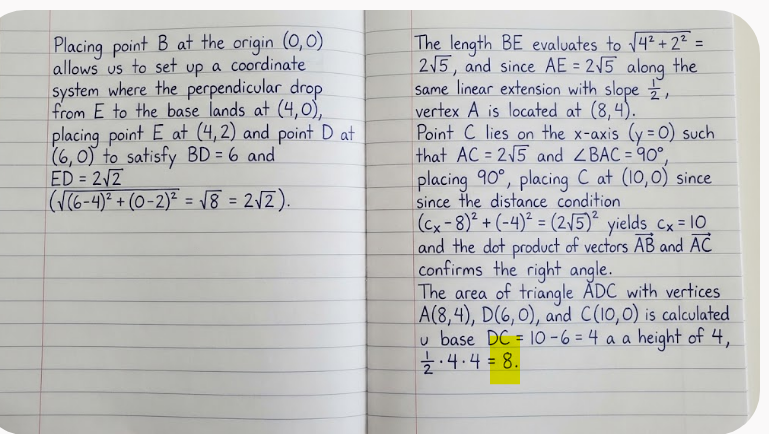 Placing point B at the origin (0,0)
allows us to set up a coordinate
system where the perpendicular drop
from E to the base lands at (4,0),
placing point E at (4,2) and point D at
(6,0) to satisfy BD = 6 and
ED = 2√2
(√((6-4)² + (0-2)²) = √8 = 2√2).
The length BE evaluates to √(4² + 2²) =
2√5, and since AE = 2√5 along the
same linear extension with slope 1/2,
vertex A is located at (8,4).
Point C lies on the x-axis (y=0) such
that AC = 2√5 and ∠BAC = 90°,
placing 90°, placing C at (10,0) since
since the distance condition
(cₓ - 8)² + (-4)² = (2√5)² yields cₓ = 10
and the dot product of vectors A͞B͞ and A͞C͞
confirms the right angle.
The area of triangle ADC with vertices
A(8,4), D(6,0), and C(10,0) is calculated
u base DC = 10 - 6 = 4 a a height of 4,
1/2 · 4 · 4 = 8.